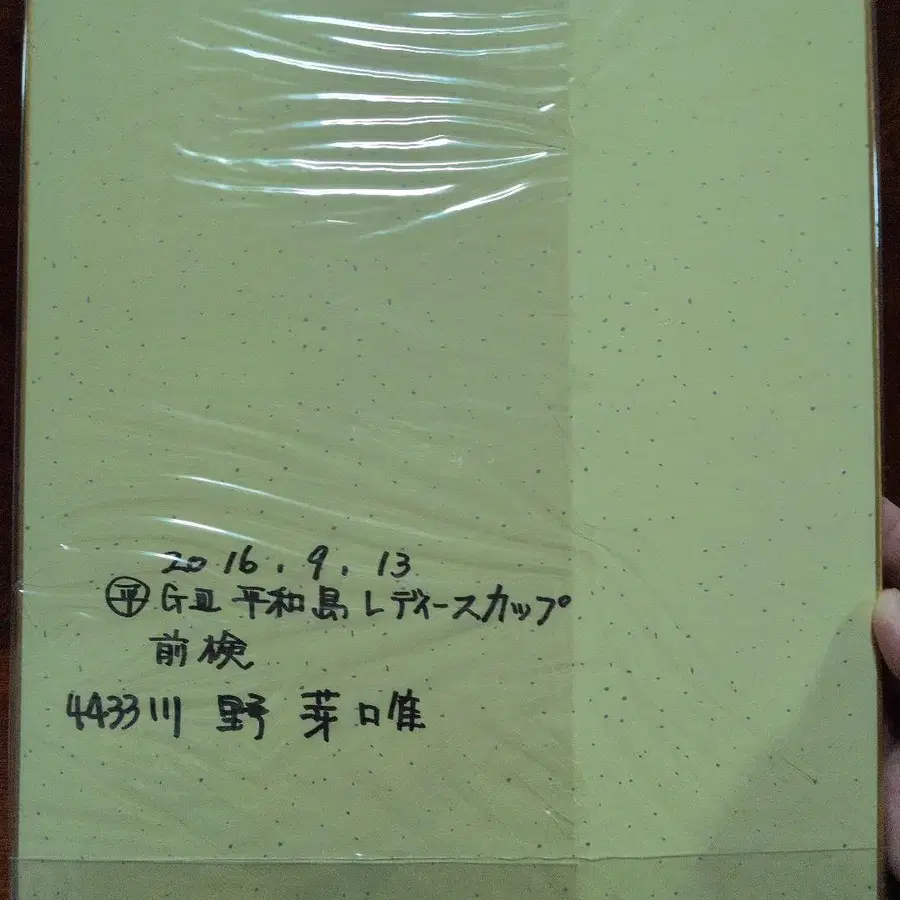 2016.9.13
㊥ GⅢ 平和島レディースカップ
前検
4433 川野 芽唯